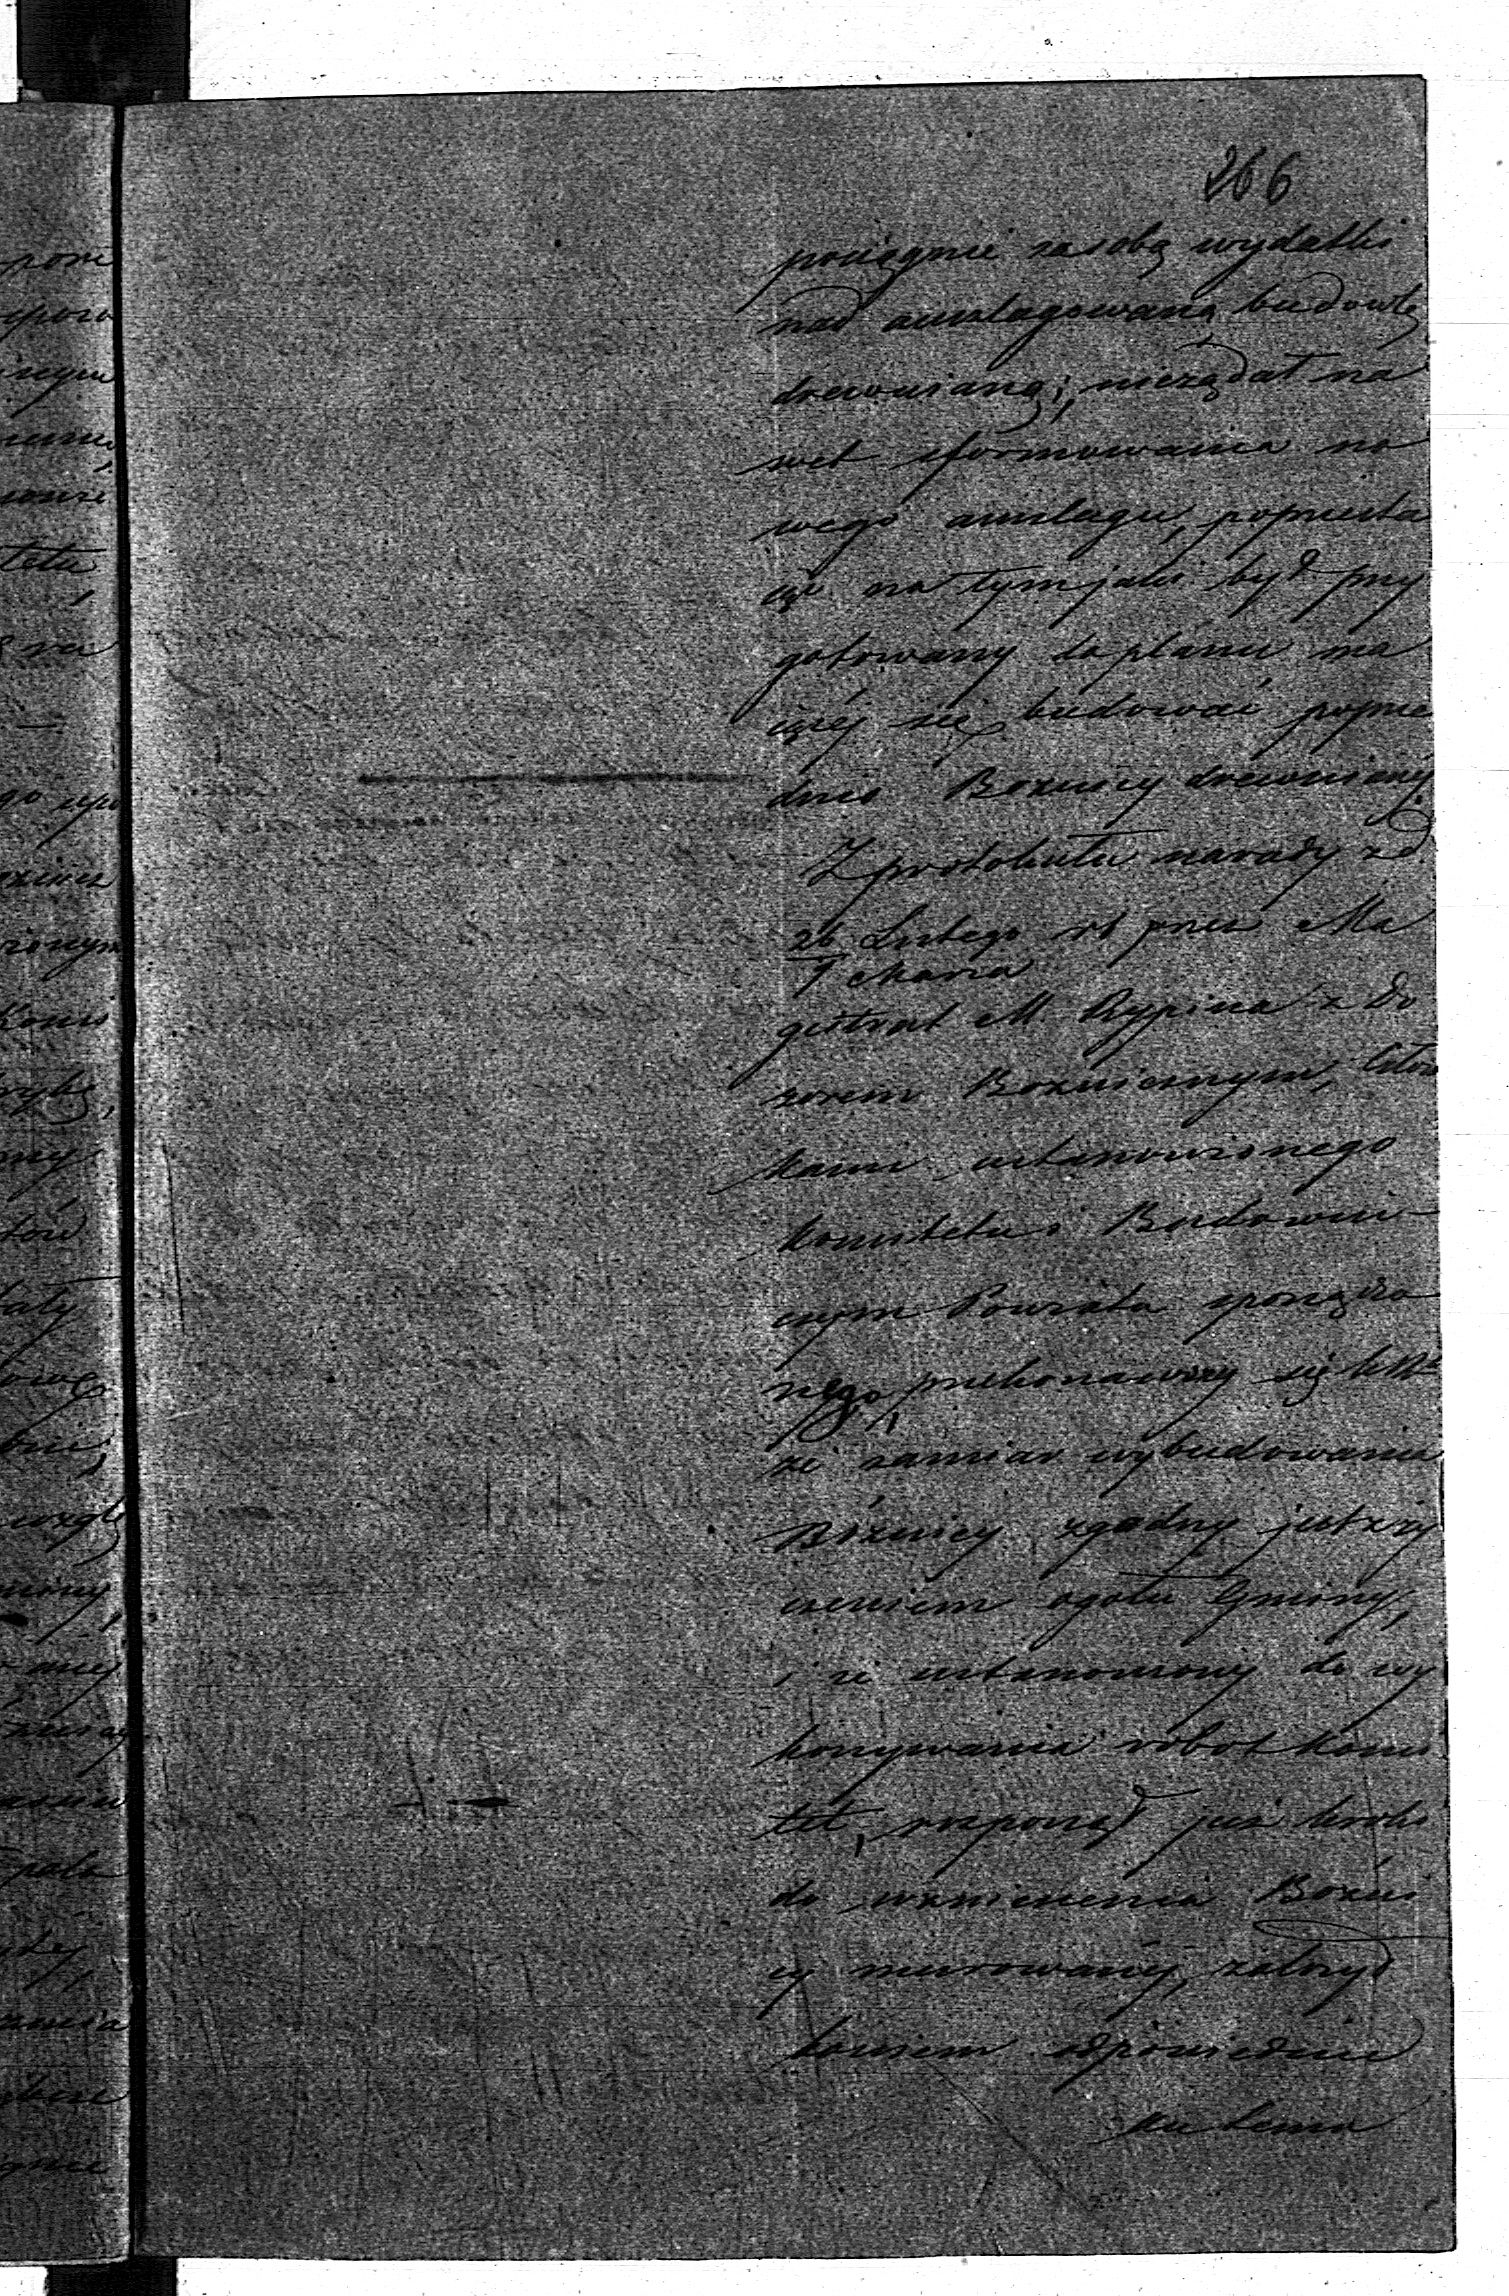 266
pociągnie za sobą wydatki
nad anszlagowaną budowlę
drewnianą; nieżądał na
wet sformowania no
wego anszlagu, poprzesta
ąc na tym jaki był przy
gotowany do planu ma
iącéj się budować poprze
dnio Bożnicy drewnianéj
Z protokułu narady z d
26 Lutego rb przez Ma
9 Marca
gistrat M. Rypina z Do
zorem Bożnicznym, Człon
kami ustanowionego
komitetu i Budowni
czym Powiatu sporządzo
nego, przekonawszy się
że zamiar wybudowania
Bóżnicy zgodny jest z ży
czeniem ogołu Gminy,
i że ustanowiony do wy
konywania robot komi
tet, rozpoczął już kroki
do wzniesienia Bożni
cy murowanéj, zatrzy
koniem odpowiednie
ku temu